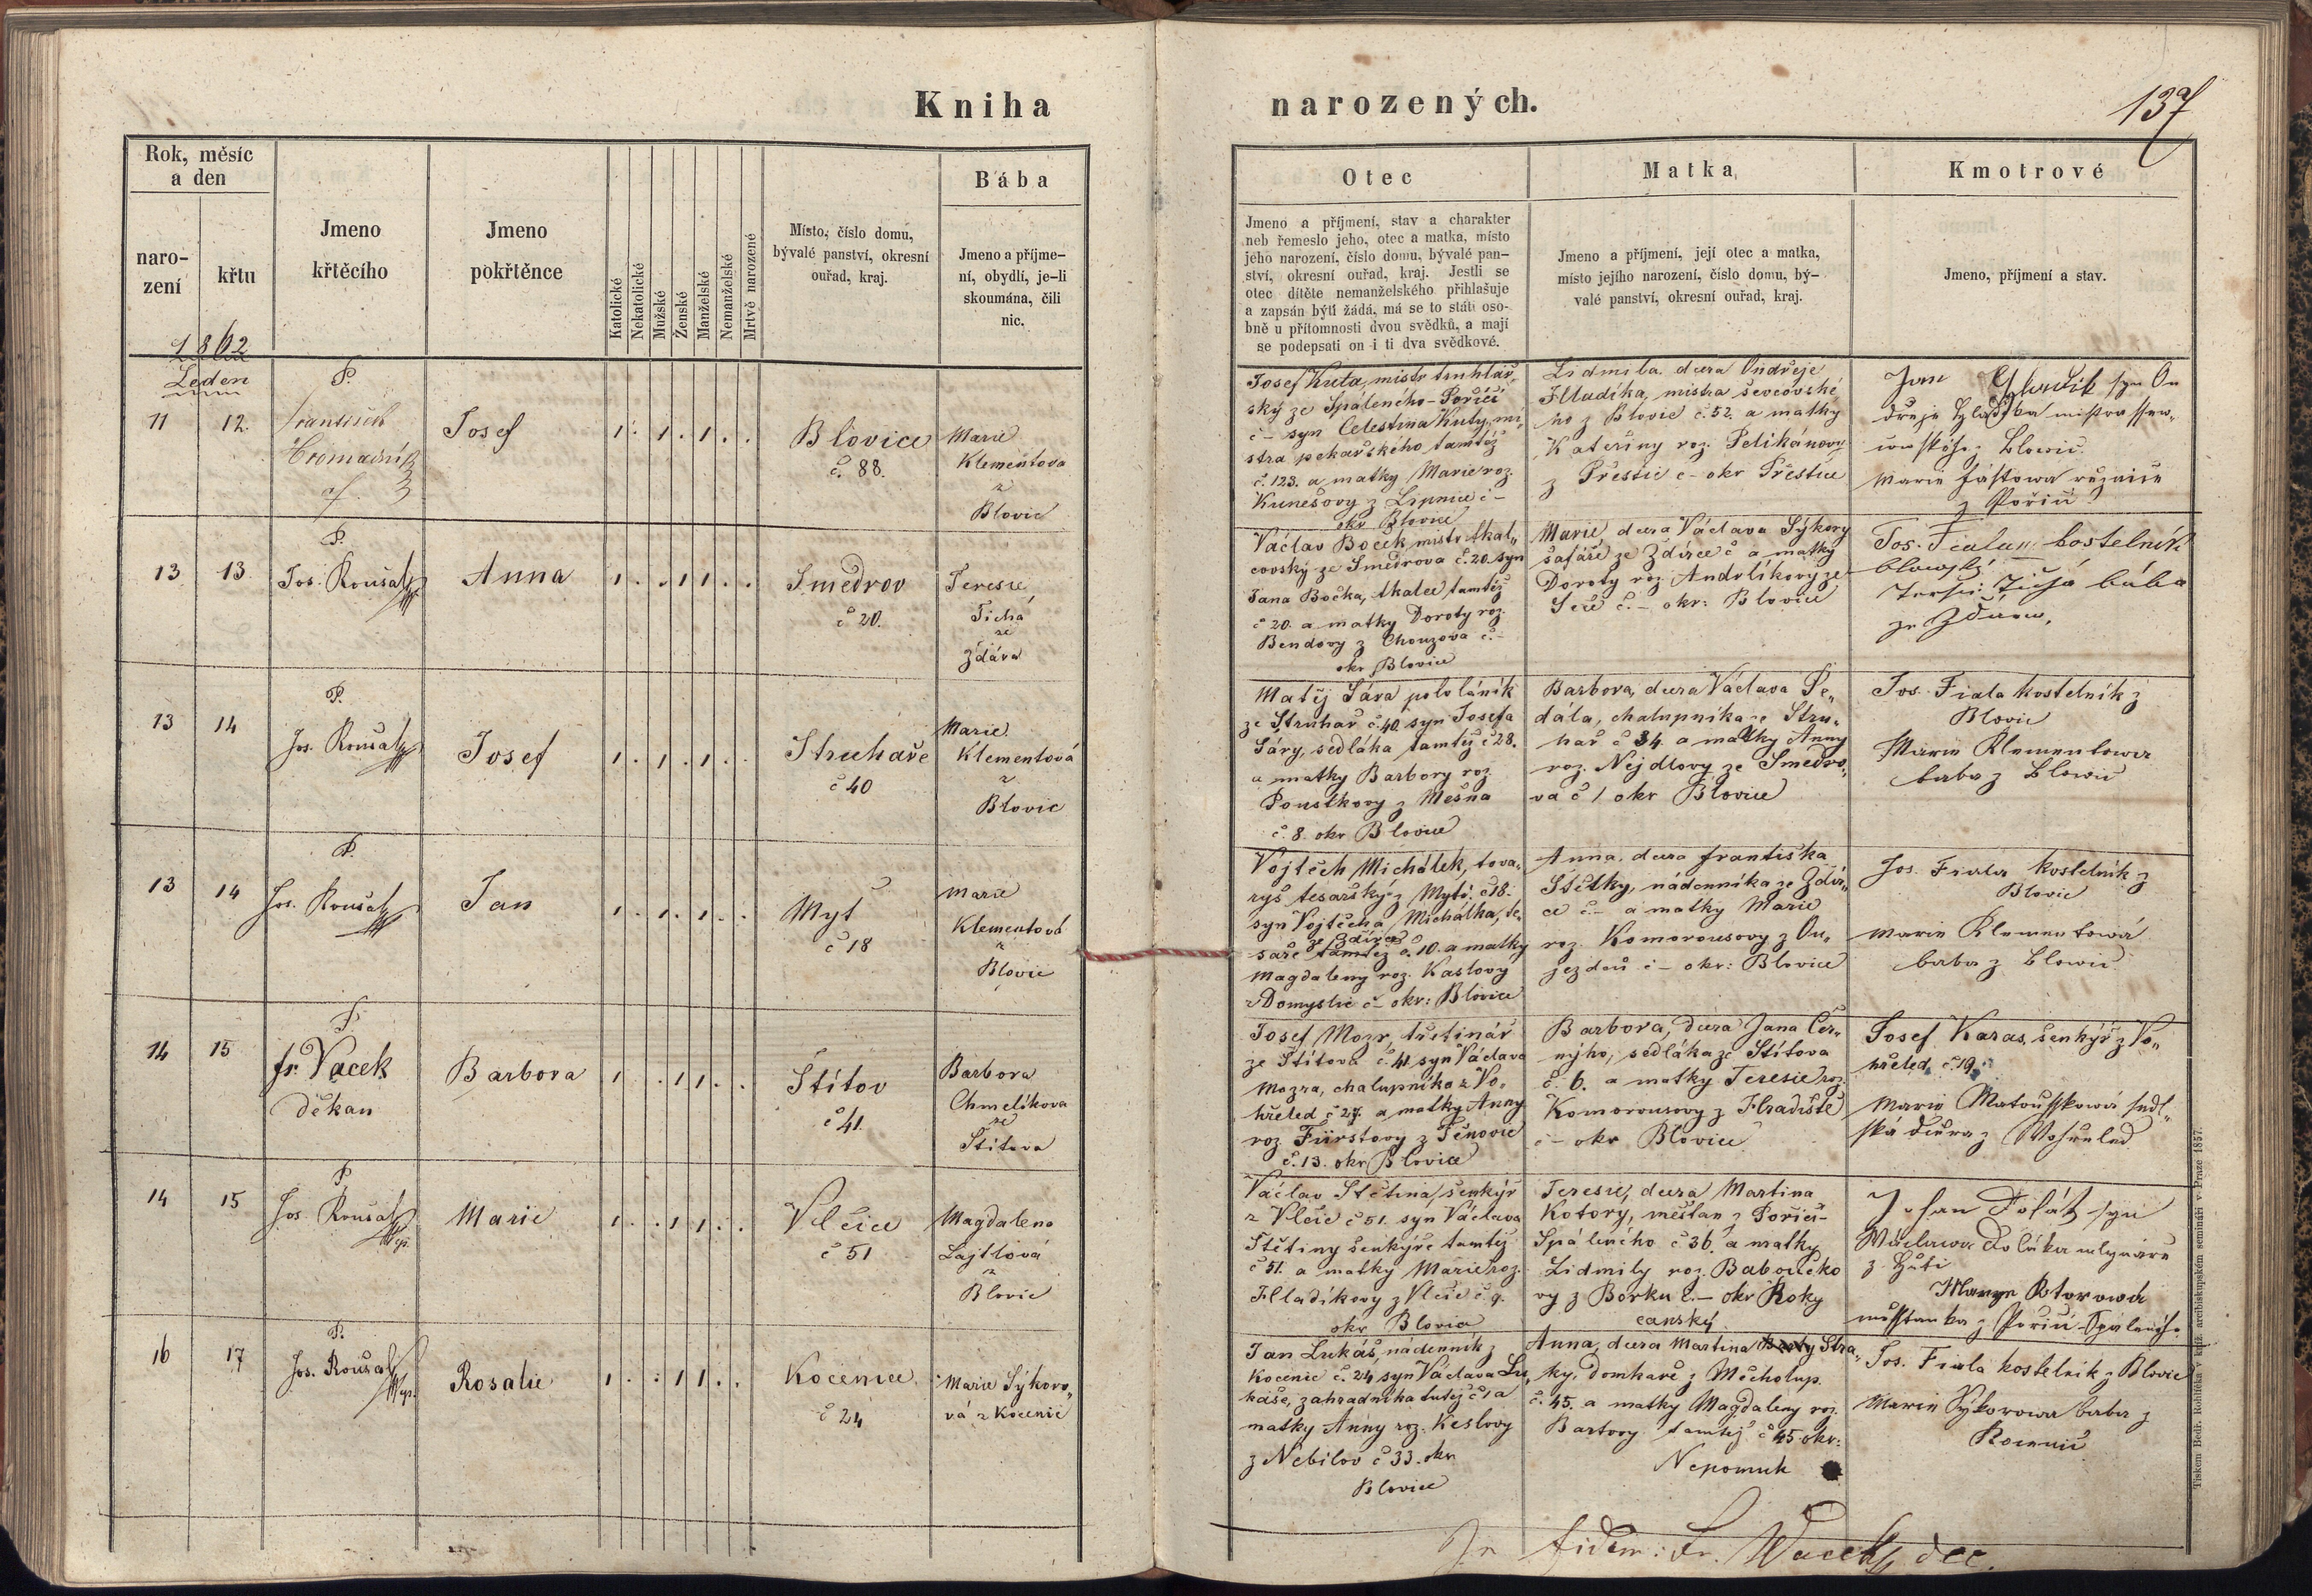 Kniha
narozených.
137
Rok, měsíc
a den
naro-
zení
křtu
Jmeno
křtěcího
Jmeno
pokřtěnce
Katolické
Nekatolické
Mužské
Ženské
Manželské
Nemanželské
Mrtvě narozené
Místo, číslo domu,
bývalé panství, okresní
ouřad, kraj.
Bába
Jmeno a příjme-
ní, obydlí, je-li
skoumána, čili
nic.
Otec
Jmeno a příjmení, stav a charakter
neb řemeslo jeho, otec a matka, místo
jeho narození, číslo domu, bývalé pan-
ství, okresní ouřad, kraj. Jestli se
otec dítěte nemanželského přihlašuje
a zapsán býti žádá, má se to státi oso-
bně u přítomnosti dvou svědků, a mají
se podepsati on i ti dva svědkové.
Matka
Jmeno a příjmení, její otec a matka,
místo jejího narození, číslo domu, bý-
valé panství, okresní ouřad, kraj.
Kmotrové
Jmeno, příjmení a stav.
1862
Leden
11
12.
P.
František
Hromadník
Josef
1 . 1 . 1 . .
Blovice
č. 88.
Marie
Klementova
z
Blovic
Josef Kuta, mistr truhlář,
ský ze Spáleného-Poříčí
č – syn Celestina Kuty, mi,
stra pekařského tamtéž
č. 123. a matky Marie roz.
Kunešovy z Lipnice č –
okr Blovice
Lidmila dcera Ondřeje
Hladíka, mistra ševcovské
ho z Blovic č. 52. a matky
Kateřiny roz. Pelikánovy
z Přeštic č – okr Přeštice
Jan Hladík syn On
dřeje Hladíka mistra ssew,
cowského z Blowic.
Marie Fástowa řeznice
z Pořičí
13
13
P.
Jos. Roušal
Anna
1 . . 1 1 . .
Smedrov
č 20.
Teresie
Tichá
ze
Zdára
Václav Boček mistr tkal„
covský ze Smedrova č. 20. syn
Jana Bočka, tkalce tamtéž
č 20. a matky Doroty roz.
Bendovy z Chouzova č. –
okr Blovice
Marie, dcera Václava Sýkory
šafáře ze Zdírce č a matky
Doroty roz. Andrlíkovy ze
Seče č. – okr: Blovice
Jos. Fiala kostelník
blowský
Teresie Tichá bába
ze Zdírce.
13
14
P.
Jos. Roušal
Josef
1 . 1 . 1 . .
Struhaře
č 40
Marie
Klementová
z
Blovic
Matěj Sára pololáník
ze Struhař č 40. syn Josefa
Sáry, sedláka tamtéž č 28.
a matky Barbory roz.
Poustkovy z Mešna
č. 8. okr Blovice
Barbora, dcera Václava Se„
dála, chalupníka ze Stru„
hař č 34. a matky Anny
roz. Nejdlovy ze Smedro„
va č 1 okr Blovice
Jos. Fiala kostelník z
Blovic
Marie Klementowa
baba z Blowic
13
14
P.
Jos. Roušal
Jan
1 . 1 . 1 . .
Myť
č 18
Marie
Klementová
z
Blovic
Vojtěch Michálek, tova„
ryš tesařský z Mytě č 18.
syn Vojtěcha Michálka, te„
ze Zdírce
saře tamtéž č. 10. a matky
Magdaleny roz. Kaslovy
z Domyslic č – okr: Blovice
Anna, dcera Františka
Stětky, nádenníka ze Zdír„
ce č. – a matky Marie
roz. Komorousovy z Ou„
jezdců č – okr: Blovice
Jos. Fiala kostelník z
Blovic
Marie Klementowá
baba z Blowic
14
15
P.
Fr. Vacek
děkan
Barbora
1 . . 1 1 . .
Štítov
č 41.
Barbora
Chmelíkova
ze
Štítova
Josef Mozr, třetinář
ze Štítova č. 41. syn Václava
Mozra, chalupníka z Vo„
hřeled č 27. a matky Anny
roz. Fürstovy z Ženovic
č. 13. okr Blovice
Barbora, dcera Jana Čer„
nýho, sedláka ze Štítova
č. 6. a matky Teresie roz.
Komorousovy z Hradiště
č – okr Blovice
Josef Karas, šenkýř z Vo„
hřeled č. 19.
Marie Matousskowá sedl„
ská dcera z Wohřeled
14
15
P.
Jos. Roušal
Marie
1 . . 1 1 . .
Vlčice
č 51
Magdalena
Lajtlová
z
Blovic
Václav Stětina, šenkýř
z Vlčic č 51. syn Václava
Stětiny šenkýře tamtéž
č 51. a matky Marie roz.
Hladíkovy z Vlčic č 9.
okr Blovice
Teresie, dcera Martina
Kotory, měšťan z Poříčí-
Spáleného č 36. a matky
Lidmily roz. Baboučko
vy z Borku č. – okr Roky
canský
Johan syn
Wáclawa mlynáře
z Huti
Marye Kotorowa
měssťanka z Pořičí Spáleného
16
17
P.
Jos. Roušal
Rosalie
1 . . 1 1 . .
Kocenice
č 24
Marie Sýkoro„
vá z Kocenic
Jan Lukáš, nádenník z
Kocenic č. 24 syn Václava Lu„
káše, zahradníka tutéž č 1 a
matky Anny roz. Keslovy
z Nebílov č 33. okr
Blovice
Anna, dcera Martina Stra„
ky, domkáře z Měcholup
č. 45. a matky Magdaleny roz.
Bartovy tamtéž č 45. okr:
Nepomuk
Jos. Fiala kostelník z Blovic
Marie Sýkorowa baba z
Kocenic
In fidem: Fr. Wacek, dec.
Tiskem Bedř. Rohlíčka v kníž. arcibiskupském semináři v Praze 1857.